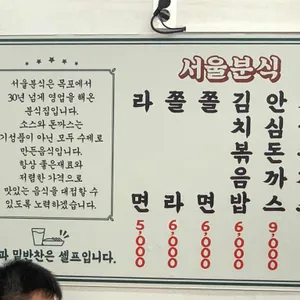 서울분식
서울분식은 목포에서
30년 넘게 영업을 해온
분식집입니다.
소스와 돈까스는
기성품이 아닌 모두 수제로
만든음식입니다.
항상 좋은재료와
저렴한 가격으로
맛있는 음식을 대접할 수
있도록 노력하겠습니다.
밑반찬은 셀프입니다.
라면 5,000
쫄라 6,000
쫄면 6,000
김치볶음밥 6,000
안심돈까스 9,000